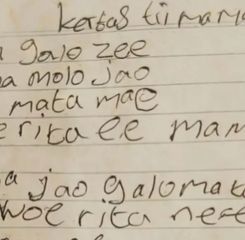 kertas tii mama
galo zee
a molo jao
mata mae
e rita ee mam
jao galo mata
woe rita nee